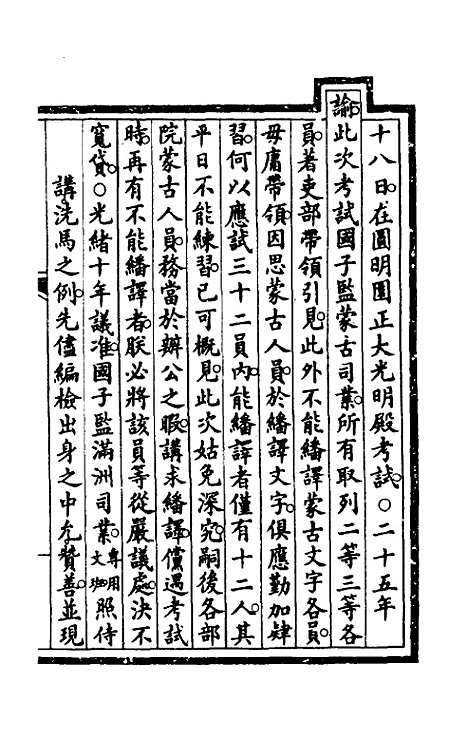 十八日。在圓明園正大光明殿考試。○二十五年
諭。此次考試國子監蒙古司業。所有取列二等三等各
員。著吏部帶領引見。此外不能繙譯蒙古文字各員。
毋庸帶領。因思蒙古人員。於繙譯文字。俱應勤加肄
習。何以應試三十二員內。能繙譯者僅有十二人。其
平日不能練習。已可概見。此次姑免深究。嗣後各部
院蒙古人員。務當於辦公之暇。講求繙譯。儻遇考試
時。再有不能繙譯者。朕必將該員等從嚴議處。決不
寬貸。○光緒十年議准。國子監滿洲司業。專用文班。照侍
講洗馬之例。先儘編檢出身之中允。贊善。並現